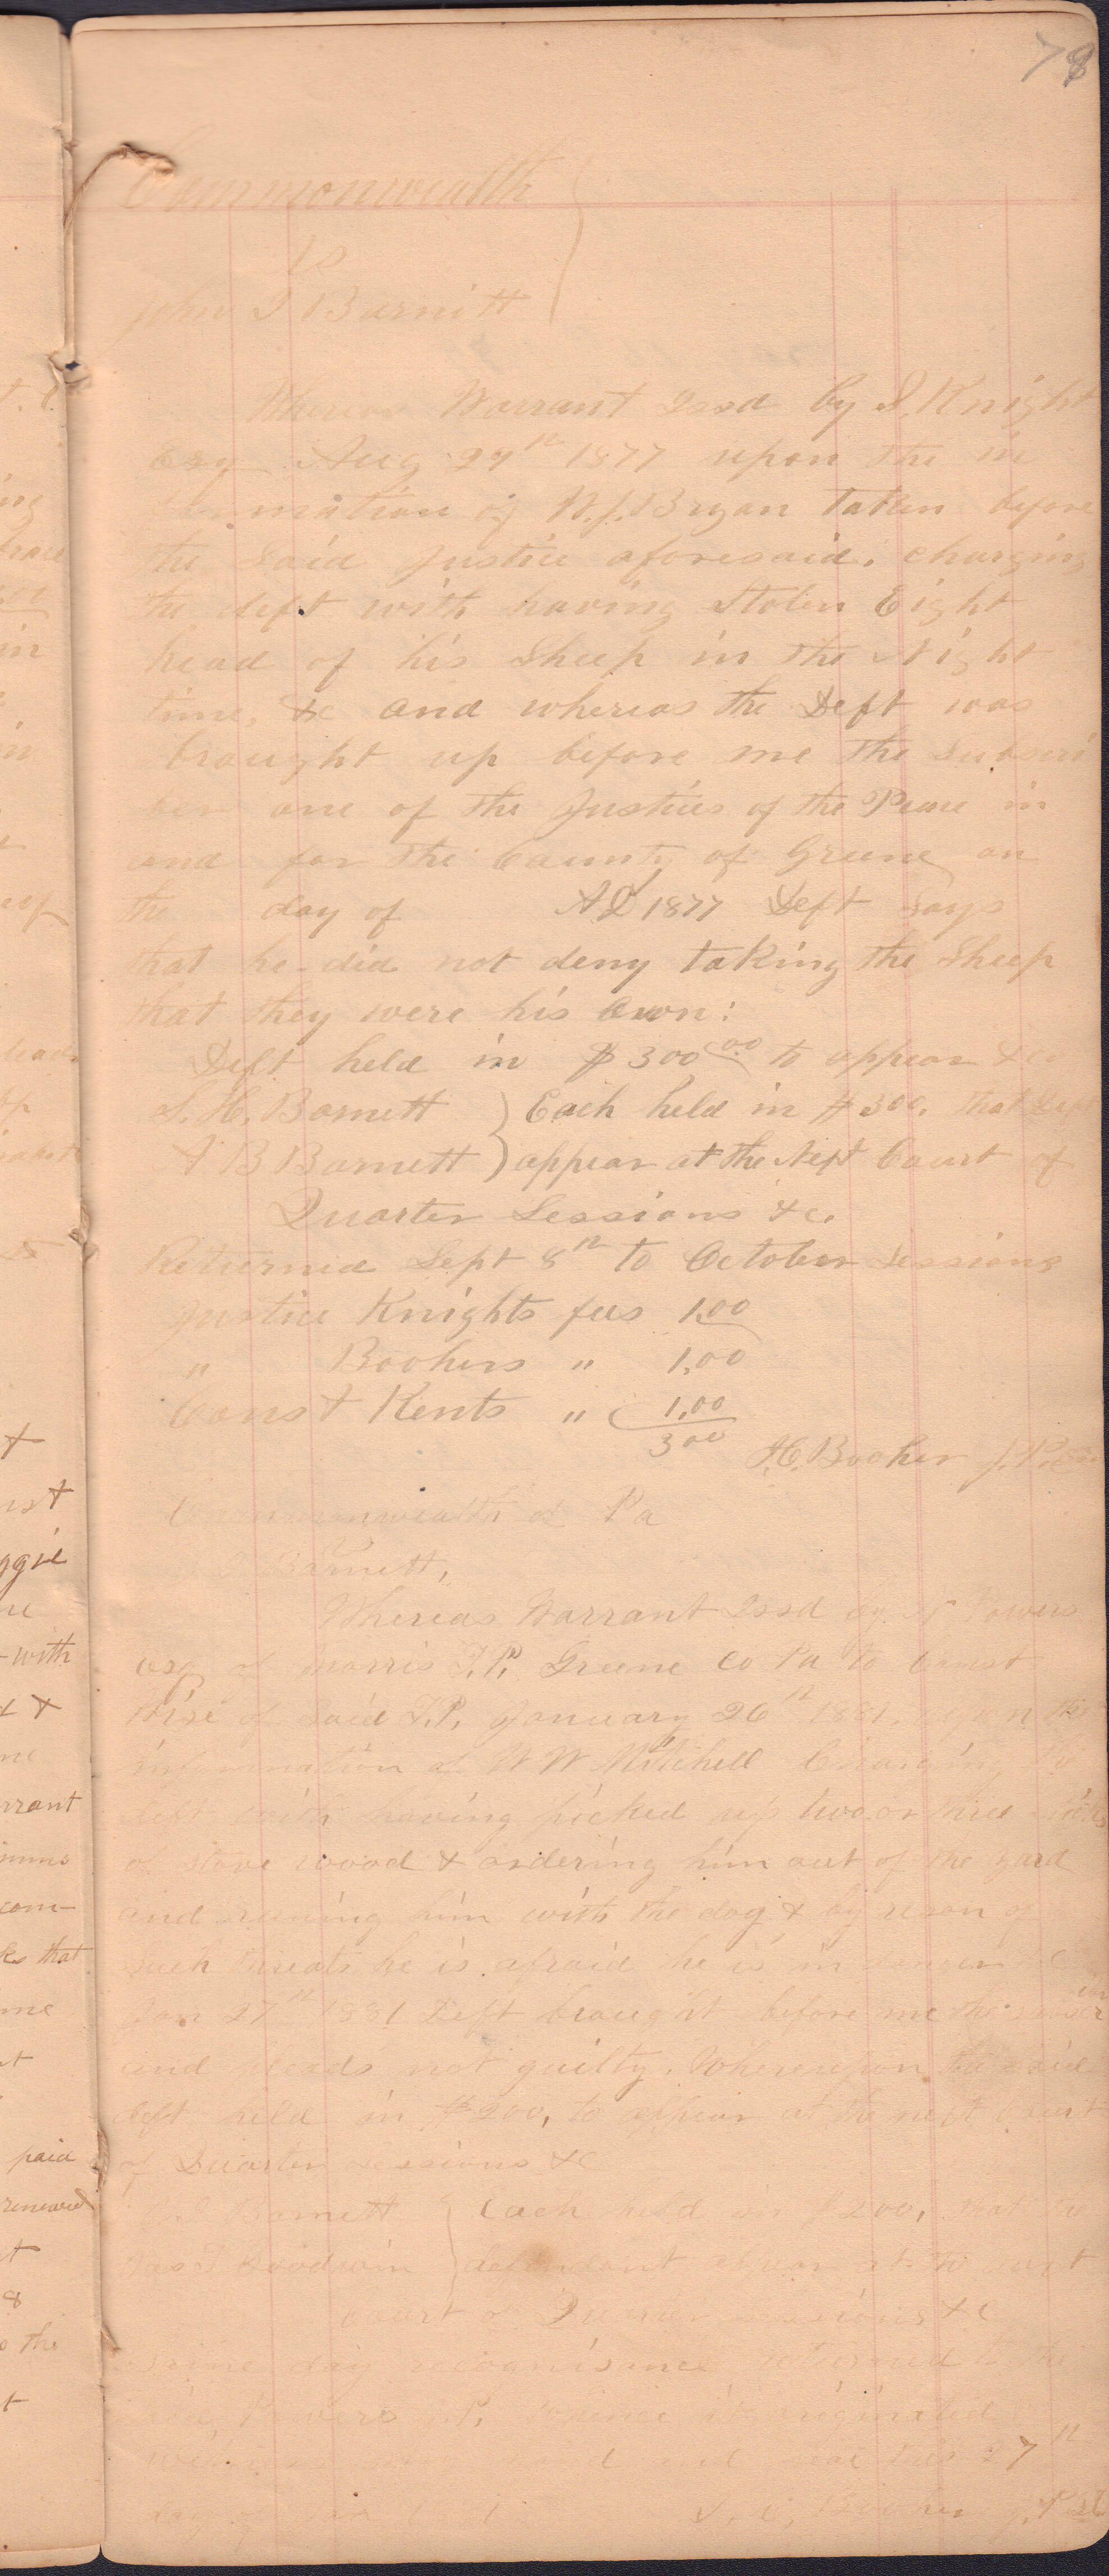 78
Commonwealth
vs
John I Barnitt
Whereas Warrant Issd by I. Knight
Esq Aug 29th 1877 upon the in
mation of W.J. Bryan taken before
the said Justice aforesaid. charging
the deft with having Stolen Eight
head of his Sheep in the Night
time, &c and whereas the Deft was
brought up before me the subscri
ber one of the Justices of the Peace in
and for the County of Greene on
the day of AD 1877 Deft says
that he did not deny taking the Sheep
that they were his own:
Deft held in $300.00 to appear &c
S. H. Barnett ) Each held in $300. that Deft
I B Barnett ) appear at the Next Court of
Quarter Sessions &c.
Returned Sept 8th to October Sessions
Justice Knights fees 1.00
" Boohers " 1.00
Const Kents " 1.00
3.00
Booher J.P.
Commonwealth of Pa
Barnett,
Whereas Warrant Issd by Powers
esq of Morris T.P. Greene Co Pa to Const
of said T.P. January 26th 1881. upon the
information of W W Mitchell Charging the
deft with having picked up two or three
of stove wood & ordering him out of the yard
and runing him with the dog & by reson of
such threats he is afraid he is in danger &c
Jan 27th 1881 Deft brought before me the
and pleads not guilty. Whereupon the said
deft held in $200, to appear at the next Court
of Quarter Sessions &c
Barnett } Each held in $200, that the
Goodwin } defendant appear at the next
court of Quarter sessions &c
same day recognisance returned to the
said Powers J.P. whence it originated
this 27th
day of
Booher J.P.